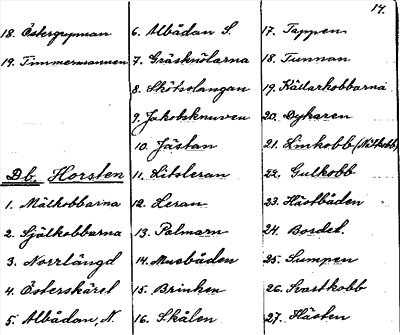 14.
18. Östergrynnan
19. Timmermannen
Db. Horsten
1. Mälkobbarna
2. Själkobbarna
3. Norrlängd
4. Österskäret
5. Albådan, N.
6. Albådan S.
7. Gräsknölarna
8. Skötsolangan
9. Jakobsknuven
10. Jästan
11. Litsleran
12. Leran
13. Palmarn
14. Musbåden
15. Brinken
16. Skålen
17. Tappen
18. Tunnan
19. Källarkobbarna
20. Dykaren
21. Limkobb (Nålkobb)
22. Gulkobb
23. Hästbåden
24. Bordet
25. Sumpen
26. Svartkobb
27. Hästen